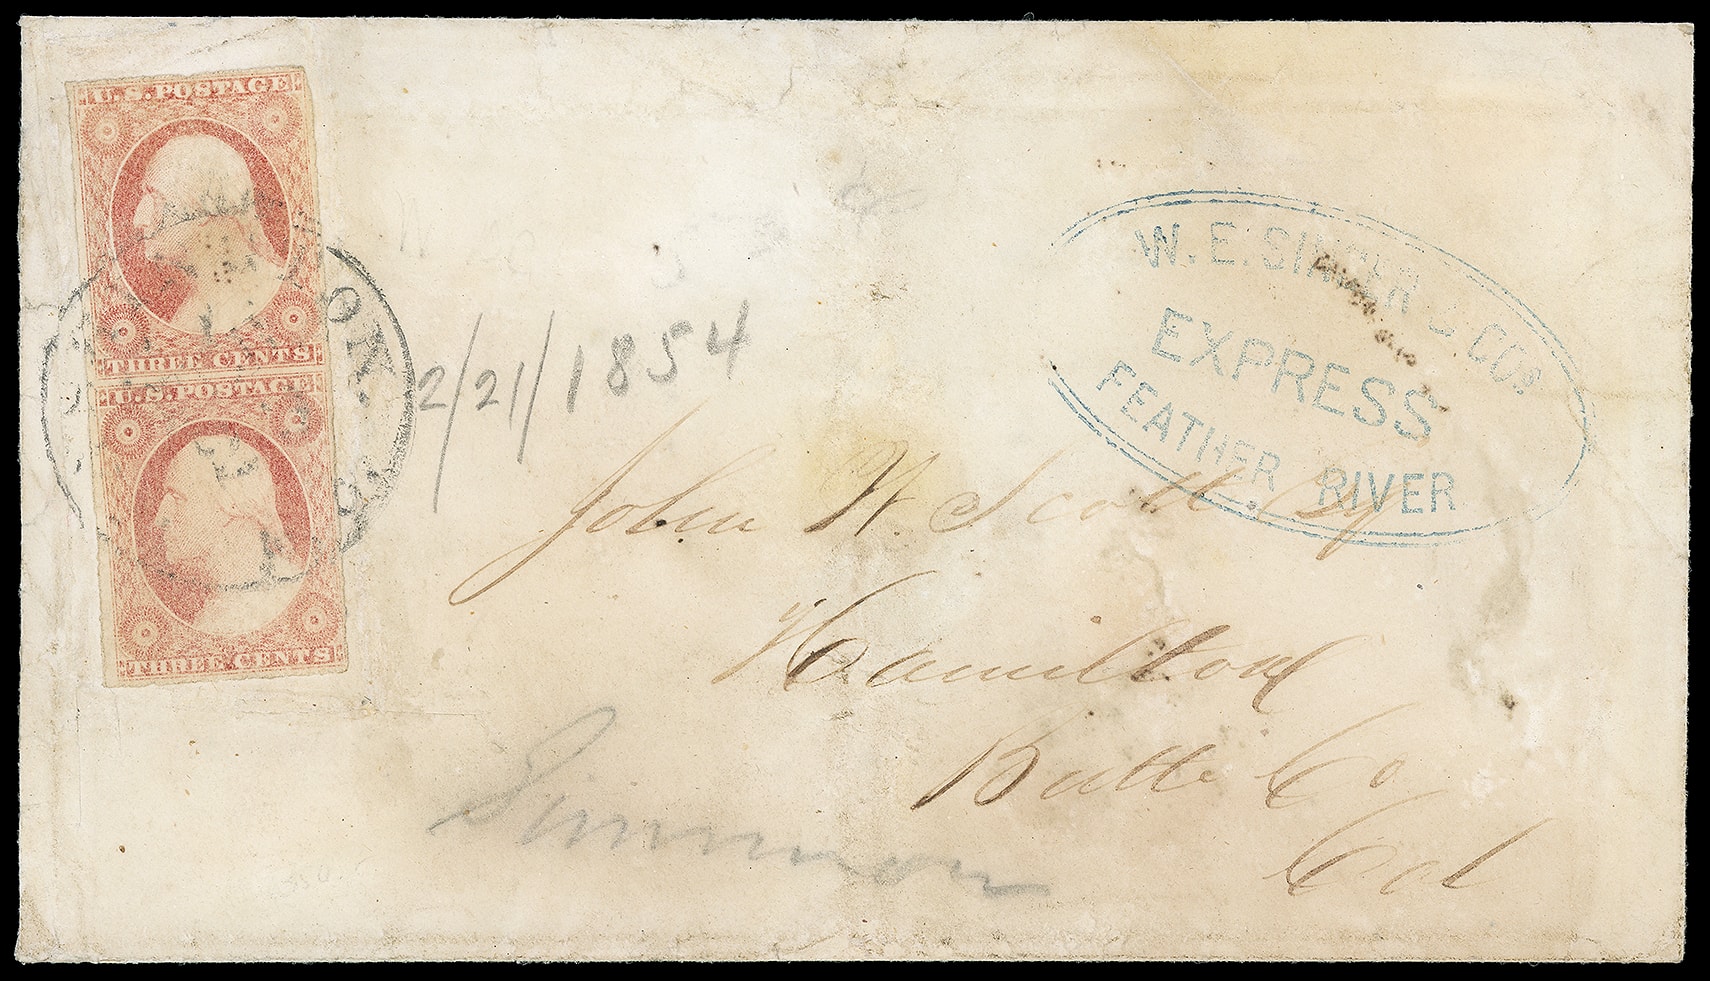 U.S. POSTAGE
THREE CENTS
U.S. POSTAGE
THREE CENTS
2/21/1854
W. E. SINGER & COs.
EXPRESS
FEATHER RIVER
John W. Scott Esq
Hamilton
Butte Co
Cal
Simmon